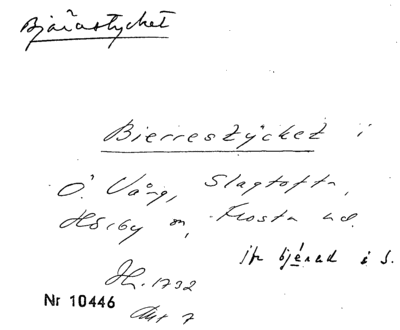 Bjärastycket
Bierrestÿcket i
Ö. Vång, Slagtofta,
Hörby sn, Frosta hd.
jfr bjärad i S.
Jh. 1732
Nr 10446
Akt 7